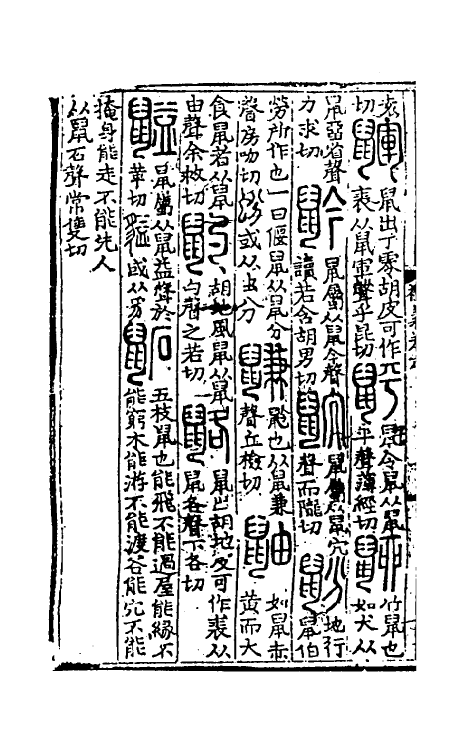 袁切鼲鼠出丁零胡皮可作裘从鼠軍聲乎昆切䶄䶃令鼠从鼠平聲薄經切䶉竹鼠也如犬从
鼠丣省聲力求切䶃鼠屬从鼠今聲讀若含胡男切鼠屬从鼠宂聲而隴切鼢地行鼠伯
勞所作也一曰偃鼠从鼠分聲房吻切蚡或从虫分鼸䶅也从鼠兼聲丘檢切鼬如鼠赤黄而大
食鼠者从鼠由聲余救切䶂胡地風鼠从鼠勺聲之若切鼠出胡地皮可作裘从鼠各聲下各切
鼠屬从鼠益聲於革切貖或从豸鼫五枝鼠也能飛不能過屋能緣不能窮木能游不能渡谷能穴不能
掩身能走不能先人从鼠石聲常隻切